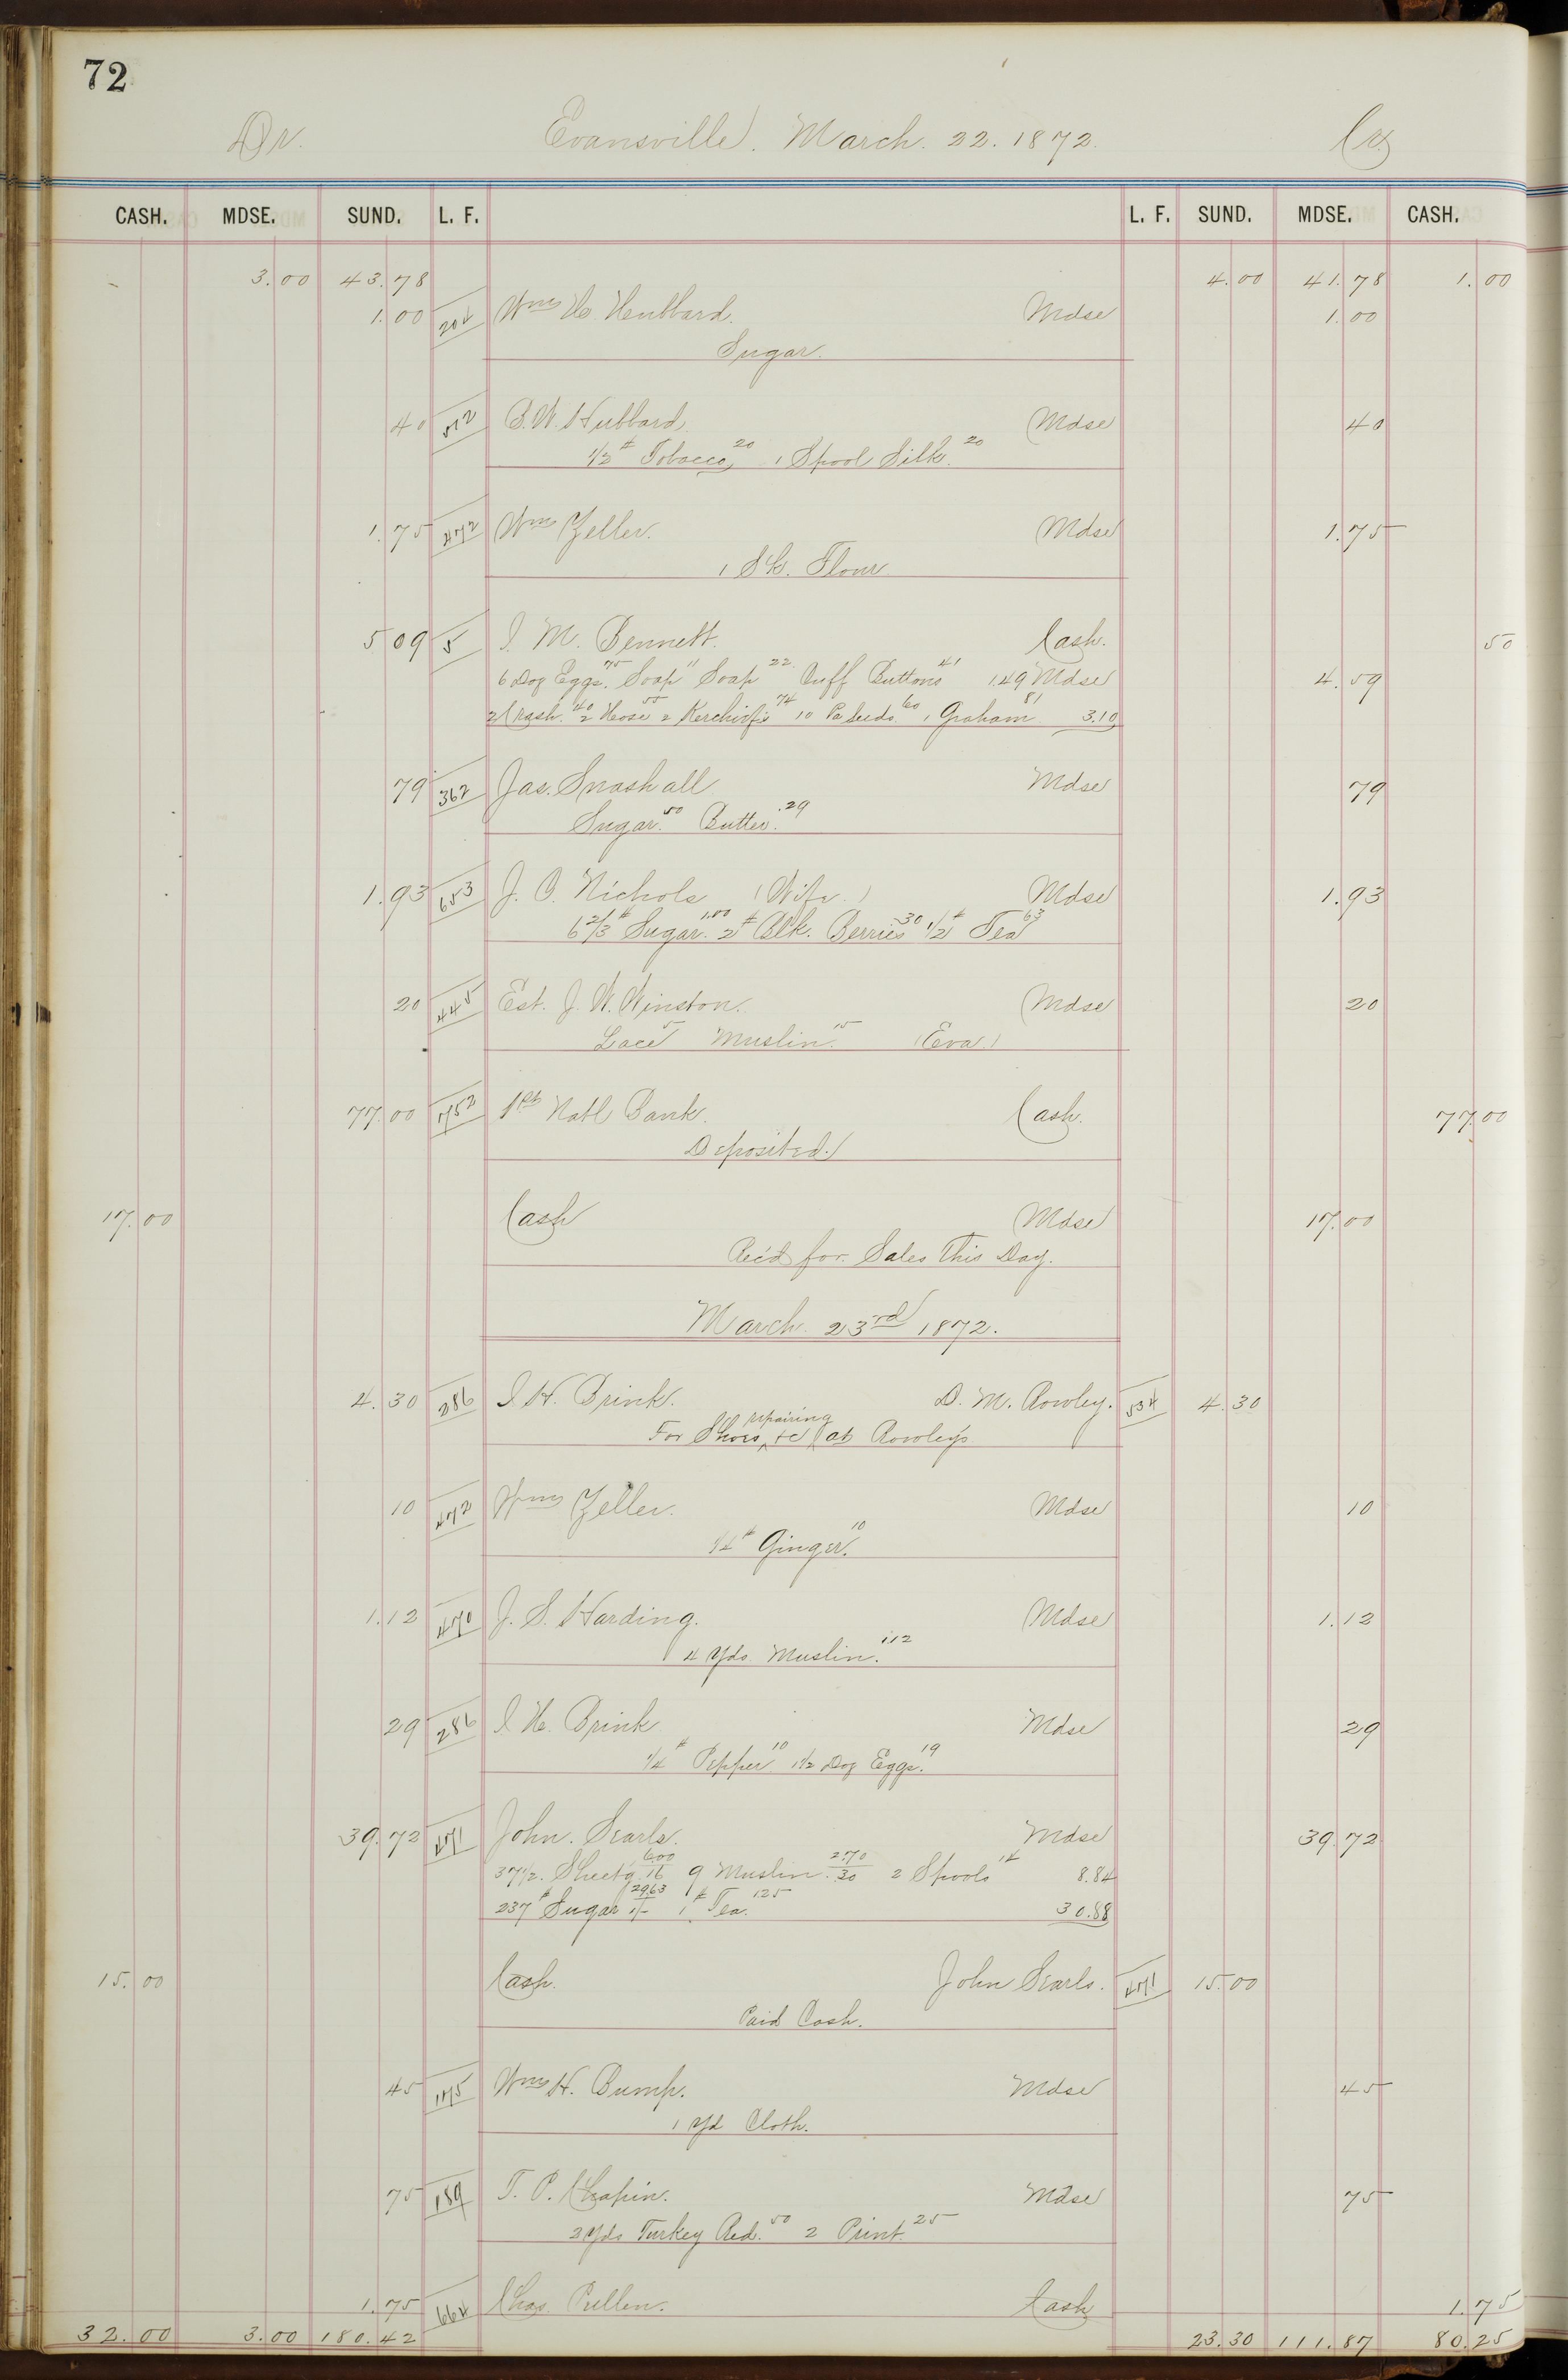 72
Dr. Evansville. March. 22. 1872. Cr.
CASH. MDSE. SUND. L. F. L. F. SUND. MDSE. CASH.
3.00 43.78 4.00 41.78 1.00
1.00 204 Wm H. Hubbard. Mdse 1.00
Sugar.
40 512 B. W. Hubbard. Mdse 40
1/2 # Tobacco 20 1 Spool Silk. 20
1.75 472 Wm Zeller. Mdse 1.75
1 Sk. Flour
5 09 5 I. M. Bennett. Cash. 50
6 Doz Eggs. 75 Soap 11 Soap 22 Cuff Buttons 41 1.49 Mdse 4.59
2 Crash. 40 2 Hose 55 2 Kerchiefs 74 10 Pa Seeds 60 1 Graham 81 3.10
79 362 Jas. Snashall Mdse 79
Sugar. 50 Butter. .29
1.93 653 J. C. Nichols (Wife.) Mdse 1.93
6 2/3 # Sugar. 1.00 2 # Blk. Berries 30 1/2 # Tea 63
20 445 Est. J. W. Winston. Mdse 20
Lace 5 Muslin. 15 (Eva.)
77.00 752 1st Natl Bank. Cash. 77.00
Deposited.
17.00 Cash Mdse 17.00
Rec'd for Sales This Day.
March. 23rd 1872.
4.30 286 I. H. Brink. D. M. Rowley. 534 4.30
repairing
For Shoes ^ &c at Rowley's
10 472 Wm Zeller. Mdse 10
1/4 # Ginger. 10
1.12 470 J. S. Harding. Mdse 1.12
4 Yds. Muslin. 1.12
29 286 I. H. Brink Mdse 29
1/4 # Pepper 10 1 1/2 Doz Eggs. 19
39.72 471 John. Searls. Mdse 39.72
37 1/2. Sheet'g 6.00 16 9 Muslin. 2.70 30 2 Spools 14 8.84
237 # Sugar 29.63 1/- 1 # Tea. 1.25 30.88
15.00 Cash. John Searls. 471 15.00
Paid Cash.
45 175 Wm H. Bump. Mdse 45
1 Yd Cloth.
75 189 T. P. Chapin. Mdse 75
2 Yds Turkey Red. 50 2 Print. 25
1.75 664 Chas. Pullen. Cash 1.75
32.00 3.00 180.42 23.30 111.87 80.25